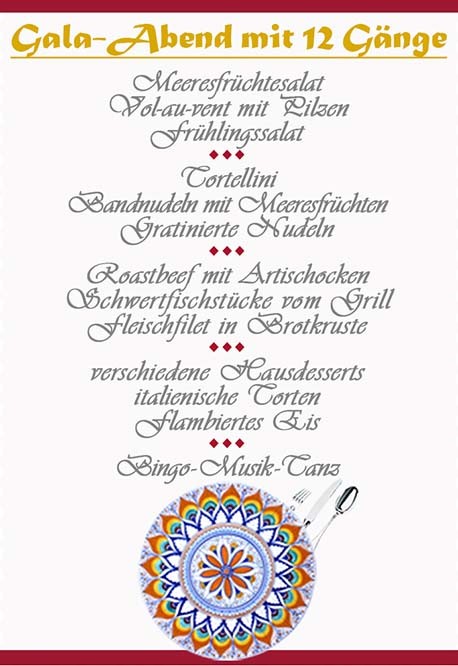 Gala-Abend mit 12 Gänge
Meeresfrüchtesalat
Vol-au-vent mit Pilzen
Frühlingssalat
Tortellini
Bandnudeln mit Meeresfrüchten
Gratinierte Nudeln
Roastbeef mit Artischocken
Schwertfischstücke vom Grill
Fleischfilet in Brotkruste
verschiedene Hausdesserts
italienische Torten
Flambiertes Eis
Bingo-Musik-Tanz